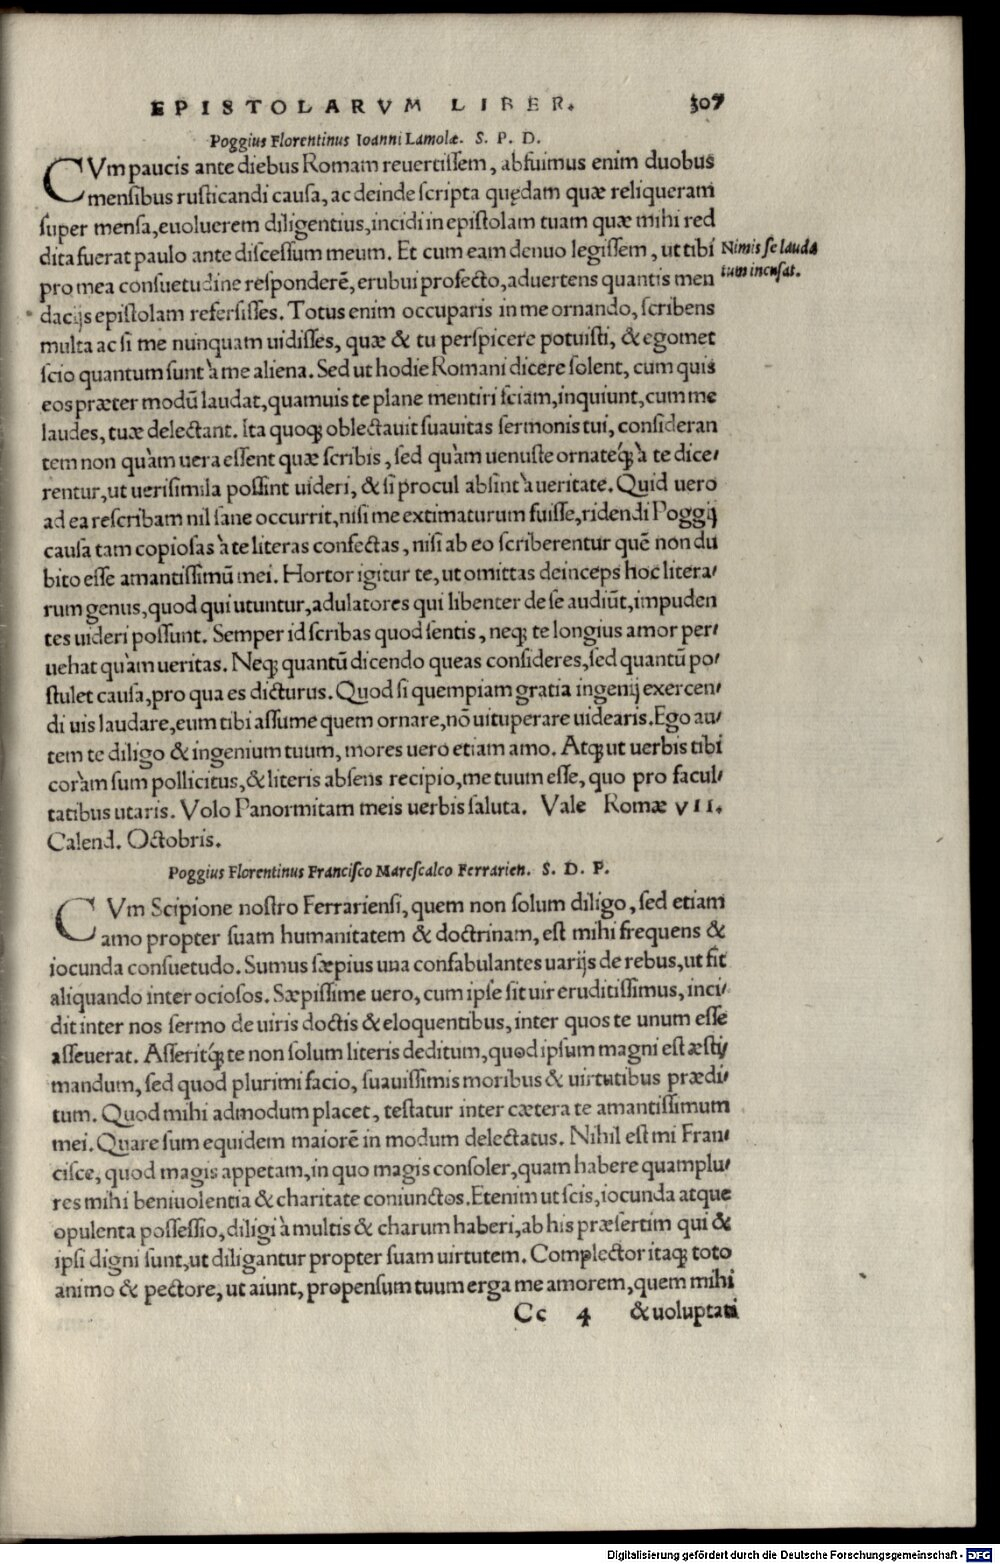 EPISTOLARVM LIBER. 307
Poggius Florentinus Ioanni Lamolæ. S. P. D.
CVm paucis ante diebus Romam reuertiſſem, abfuimus enim duobus
menſibus ruſticandi cauſa, ac deinde ſcripta quędam quæ reliqueram
ſuper menſa, euoluerem diligentius, incidi in epiſtolam tuam quæ mihi red
dita fuerat paulo ante diſceſſum meum. Et cum eam denuo legiſſem, ut tibi
Nimis ſe lauda
tum incuſat.
pro mea conſuetudine reſponderē, erubui profecto, aduertens quantis men
dacijs epiſtolam referſiſſes. Totus enim occuparis in me ornando, ſcribens
multa ac ſi me nunquam uidiſſes, quæ & tu perſpicere potuiſti, & egomet
ſcio quantum ſunt à me aliena. Sed ut hodie Romani dicere ſolent, cum quis
eos præter modū laudat, quamuis te plane mentiri ſciam, inquiunt, cum me
laudes, tuæ delectant. Ita quoq; oblectauit ſuauitas ſermonis tui, conſideran
tem non quàm uera eſſent quæ ſcribis, ſed quàm uenuſte ornateq́; à te dice-
rentur, ut ueriſimila poſſint uideri, & ſi procul abſint à ueritate. Quid uero
ad ea reſcribam nil ſane occurrit, niſi me extimaturum fuiſſe, ridendi Poggij
cauſa tam copioſas à te literas confectas, niſi ab eo ſcriberentur quē non du
bito eſſe amantiſſimū mei. Hortor igitur te, ut omittas deinceps hoc litera-
rum genus, quod qui utuntur, adulatores qui libenter de ſe audiūt, impuden
tes uideri poſſunt. Semper id ſcribas quod ſentis, neq; te longius amor per-
uehat quàm ueritas. Neq; quantū dicendo queas conſideres, ſed quantū po-
ſtulet cauſa, pro qua es dicturus. Quod ſi quempiam gratia ingenij exercen-
di uis laudare, eum tibi aſſume quem ornare, nō uituperare uidearis. Ego au-
tem te diligo & ingenium tuum, mores uero etiam amo. Atq; ut uerbis tibi
coràm ſum pollicitus, & literis abſens recipio, me tuum eſſe, quo pro facul-
tatibus utaris. Volo Panormitam meis uerbis ſaluta. Vale Romæ VII.
Calend. Octobris.
Poggius Florentinus Franciſco Mareſcalco Ferrarien. S. D. P.
CVm Scipione noſtro Ferrarienſi, quem non ſolum diligo, ſed etiam
amo propter ſuam humanitatem & doctrinam, eſt mihi frequens &
iocunda conſuetudo. Sumus ſæpius una confabulantes uarijs de rebus, ut fit
aliquando inter ocioſos. Sæpiſſime uero, cum ipſe ſit uir eruditiſſimus, inci-
dit inter nos ſermo de uiris doctis & eloquentibus, inter quos te unum eſſe
aſſeuerat. Aſſeritq́; te non ſolum literis deditum, quod ipſum magni eſt æſti-
mandum, ſed quod plurimi facio, ſuauiſſimis moribus & uirtutibus prædi-
tum. Quod mihi admodum placet, teſtatur inter cætera te amantiſſimum
mei. Quare ſum equidem maiorē in modum delectatus. Nihil eſt mi Fran-
ciſce, quod magis appetam, in quo magis conſoler, quam habere quamplu-
res mihi beniuolentia & charitate coniunctos. Etenim ut ſcis, iocunda atque
opulenta poſſeſſio, diligi à multis & charum haberi, ab his præſertim qui &
ipſi digni ſunt, ut diligantur propter ſuam uirtutem. Complector itaq; toto
animo & pectore, ut aiunt, propenſum tuum erga me amorem, quem mihi
Cc 4 & uoluptati
Digitalisierung gefördert durch die Deutsche Forschungsgemeinschaft - DFG